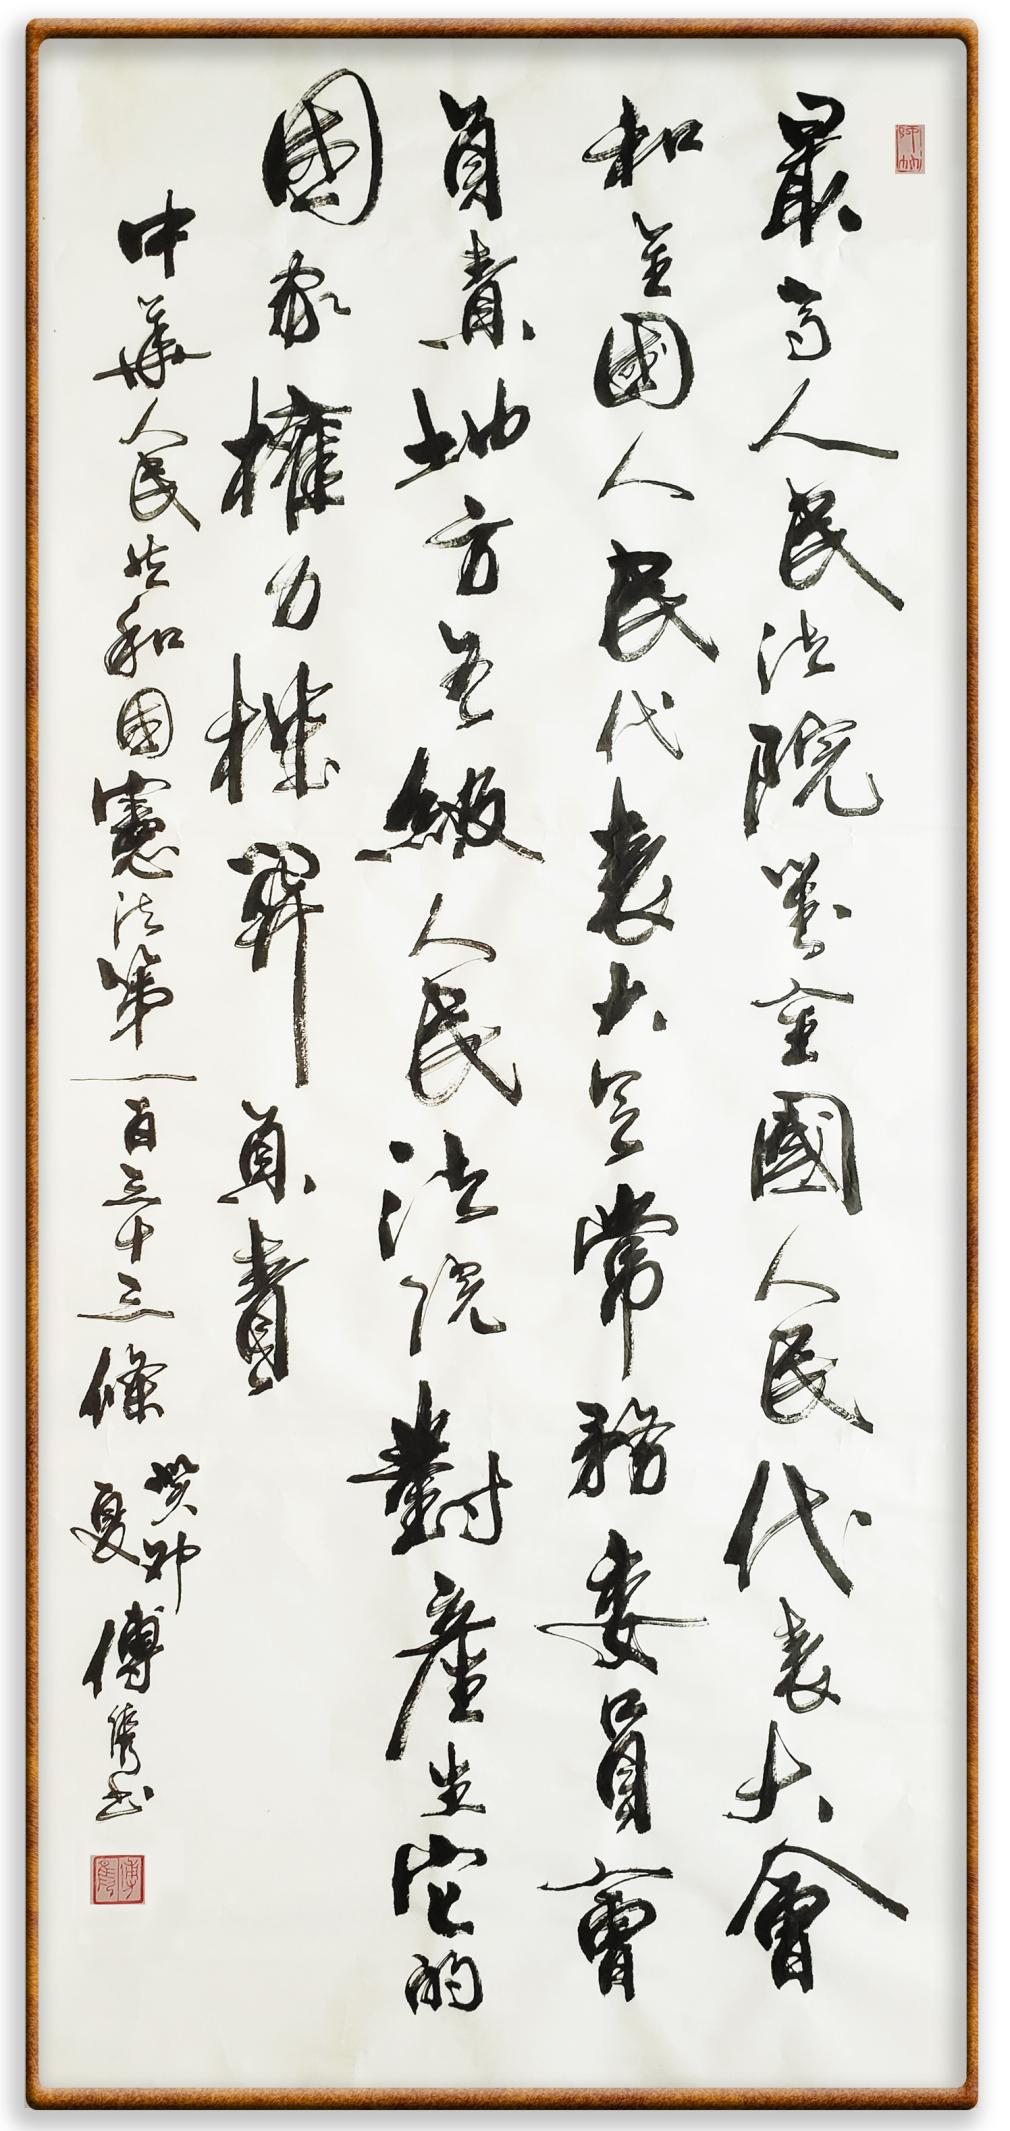 最高人民法院對全國人民代表大會
和全國人民代表大會常務委員會
負責地方各級人民法院對產生它的
國家權力機関負責
中華人民共和國憲法第一百三十三條
癸卯
夏
傅雋书